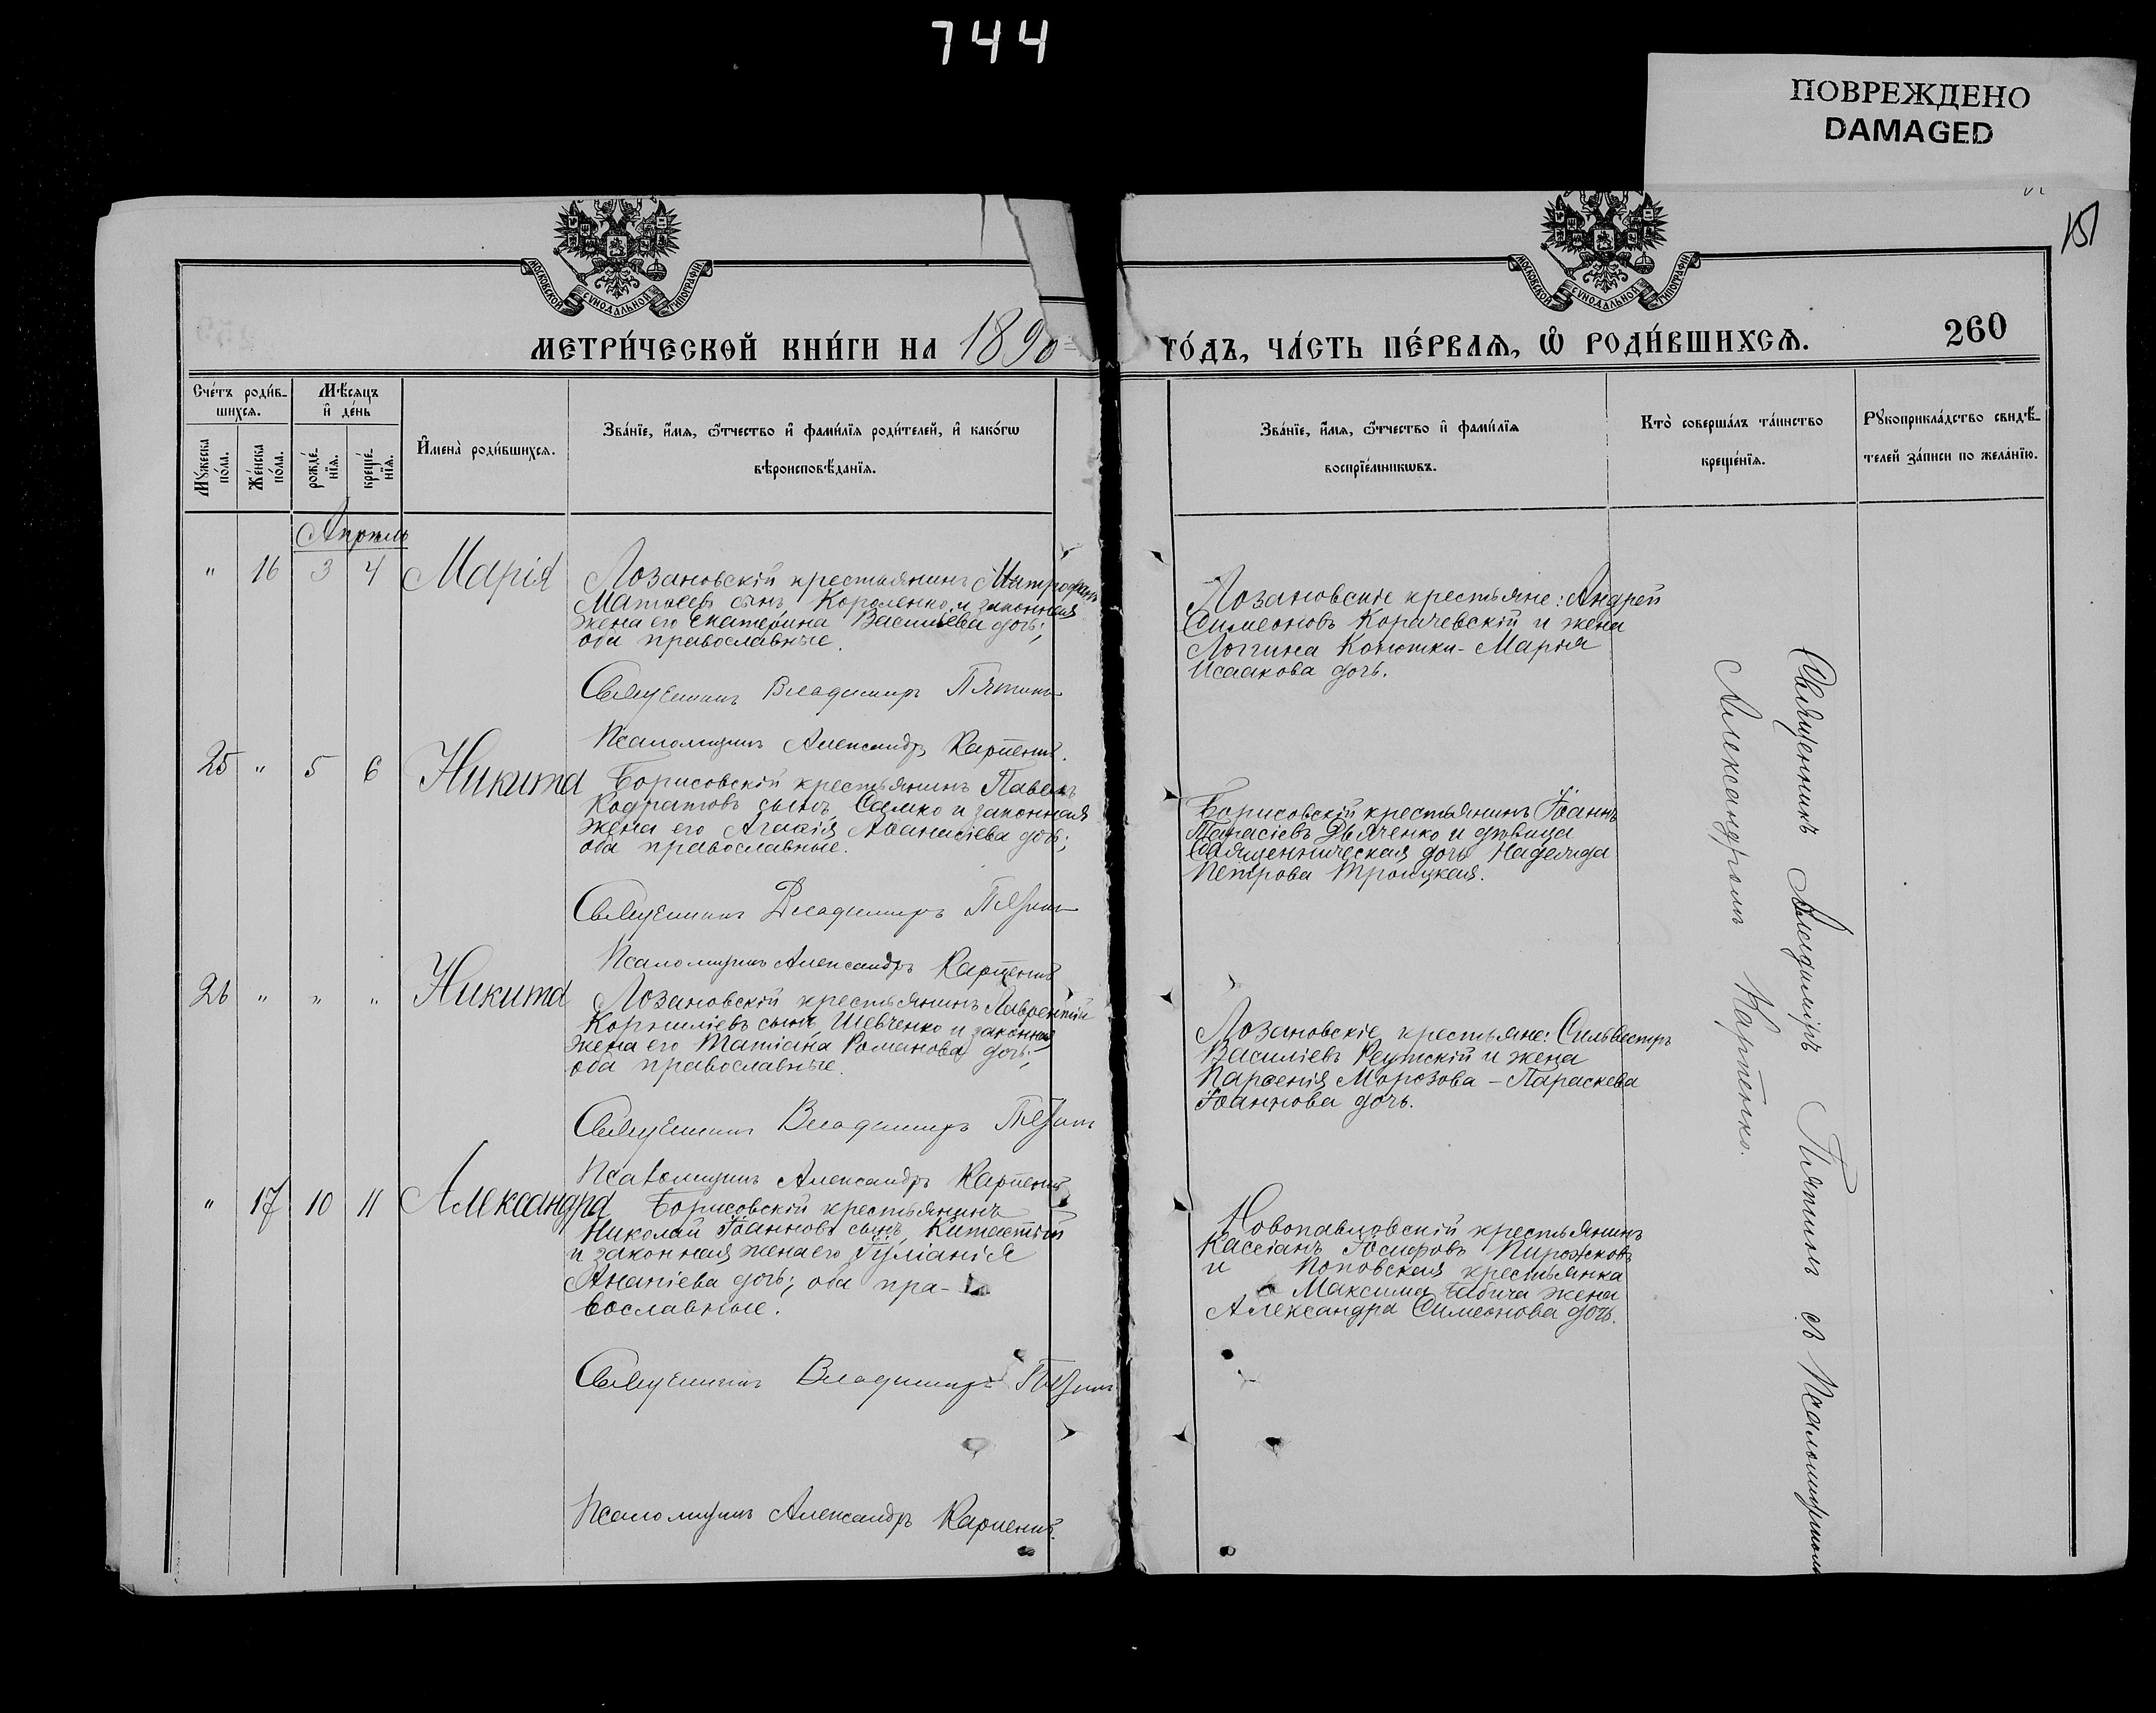 744
ПОВРЕЖДЕНО
DAMAGED
151
МОСКОВСКОЙ СѴНОДАЛЬНОЙ ТИПОГРАФІИ
МОСКОВСКОЙ СѴНОДАЛЬНОЙ ТИПОГРАФІИ
МЕТРИ́ЧЕСКОЙ КНИ́ГИ НА 1890
ГО́ДЪ, ЧА́СТЬ ПЕ́РВАѦ, Ѡ҆ РОДИ́ВШИХСѦ.
260
Сче́тъ роди́в-
шихсѧ.
Мѣ́сѧцъ
и҆ де́нь
Мꙋ́жеска
по́ла.
Же́нска
по́ла.
рожде́-
нїѧ.
креще́-
нїѧ.
И҆мена̀ роди́вшихсѧ.
Зва́нїе, и҆́мѧ, ѻ҆́тчество и҆ фами́лїѧ роди́телей, и҆ како́гѡ
вѣроисповѣ́данїѧ.
Зва́нїе, и҆́мѧ, ѻ҆́тчество и҆ фами́лїѧ
воспрїе́мникѡвъ.
Кто̀ соверша́лъ та́инство
креще́нїѧ.
Рꙋкоприкла́дство свидѣ́-
телей за́писи по жела́нїю.
Апрѣль
" 16 3 4 Марія
Лозановскій крестьянинъ Митрофанъ
Матѳеевъ сынъ Короленко и законная
жена его Екатерина Васильева дочь;
оба православные.
Священникъ Владимиръ Пятинъ
Псаломщикъ Александръ Карпенко.
Лозановскіе крестьяне: Андрей
Симеоновъ Корачевскій и жена
Логгина Марія
Исаакова дочь.
25 " 5 6 Никита
Борисовскій крестьянинъ Павелъ
Кодратовъ сынъ и законная
жена его Агаѳія Аѳанасіева дочь;
оба православные.
Священникъ Владимиръ Пятинъ
Псаломщикъ Александръ Карпенко
Борисовскій крестьянинъ Іоаннъ
Тарасіевъ Дьяченко и дѣвица
Священническая дочь Надежда
Петрова Троицкая.
26 " " " Никита
Лозановскій крестьянинъ Лаврентій
Корниліевъ сынъ Шевченко и законная
жена его Татіана Романова дочь;
оба православные.
Священникъ Владимиръ Пятинъ
Псаломщикъ Александръ Карпенко
Лозановскіе крестьяне: Сильвестръ
Василіевъ Реутскій и жена
Парѳенія Морозова - Параскева
Іоаннова дочь.
" 17 10 11 Александра
Борисовскій крестьянинъ
Николай Іоанновъ сынъ
и законная жена его Іуліанія
Ананіева дочь; оба пра-
вославные.
Священникъ Владимиръ Пятинъ
Псаломщикъ Александръ Карпенко.
Новопавловскій крестьянинъ
Кассіанъ Іосифовъ Пирожковъ
и Поповская крестьянка
Максима Бабича жена
Александра Симеонова дочь.
Священникъ Владиміръ Пятинъ съ Псаломщикомъ
Александромъ Карпенко.